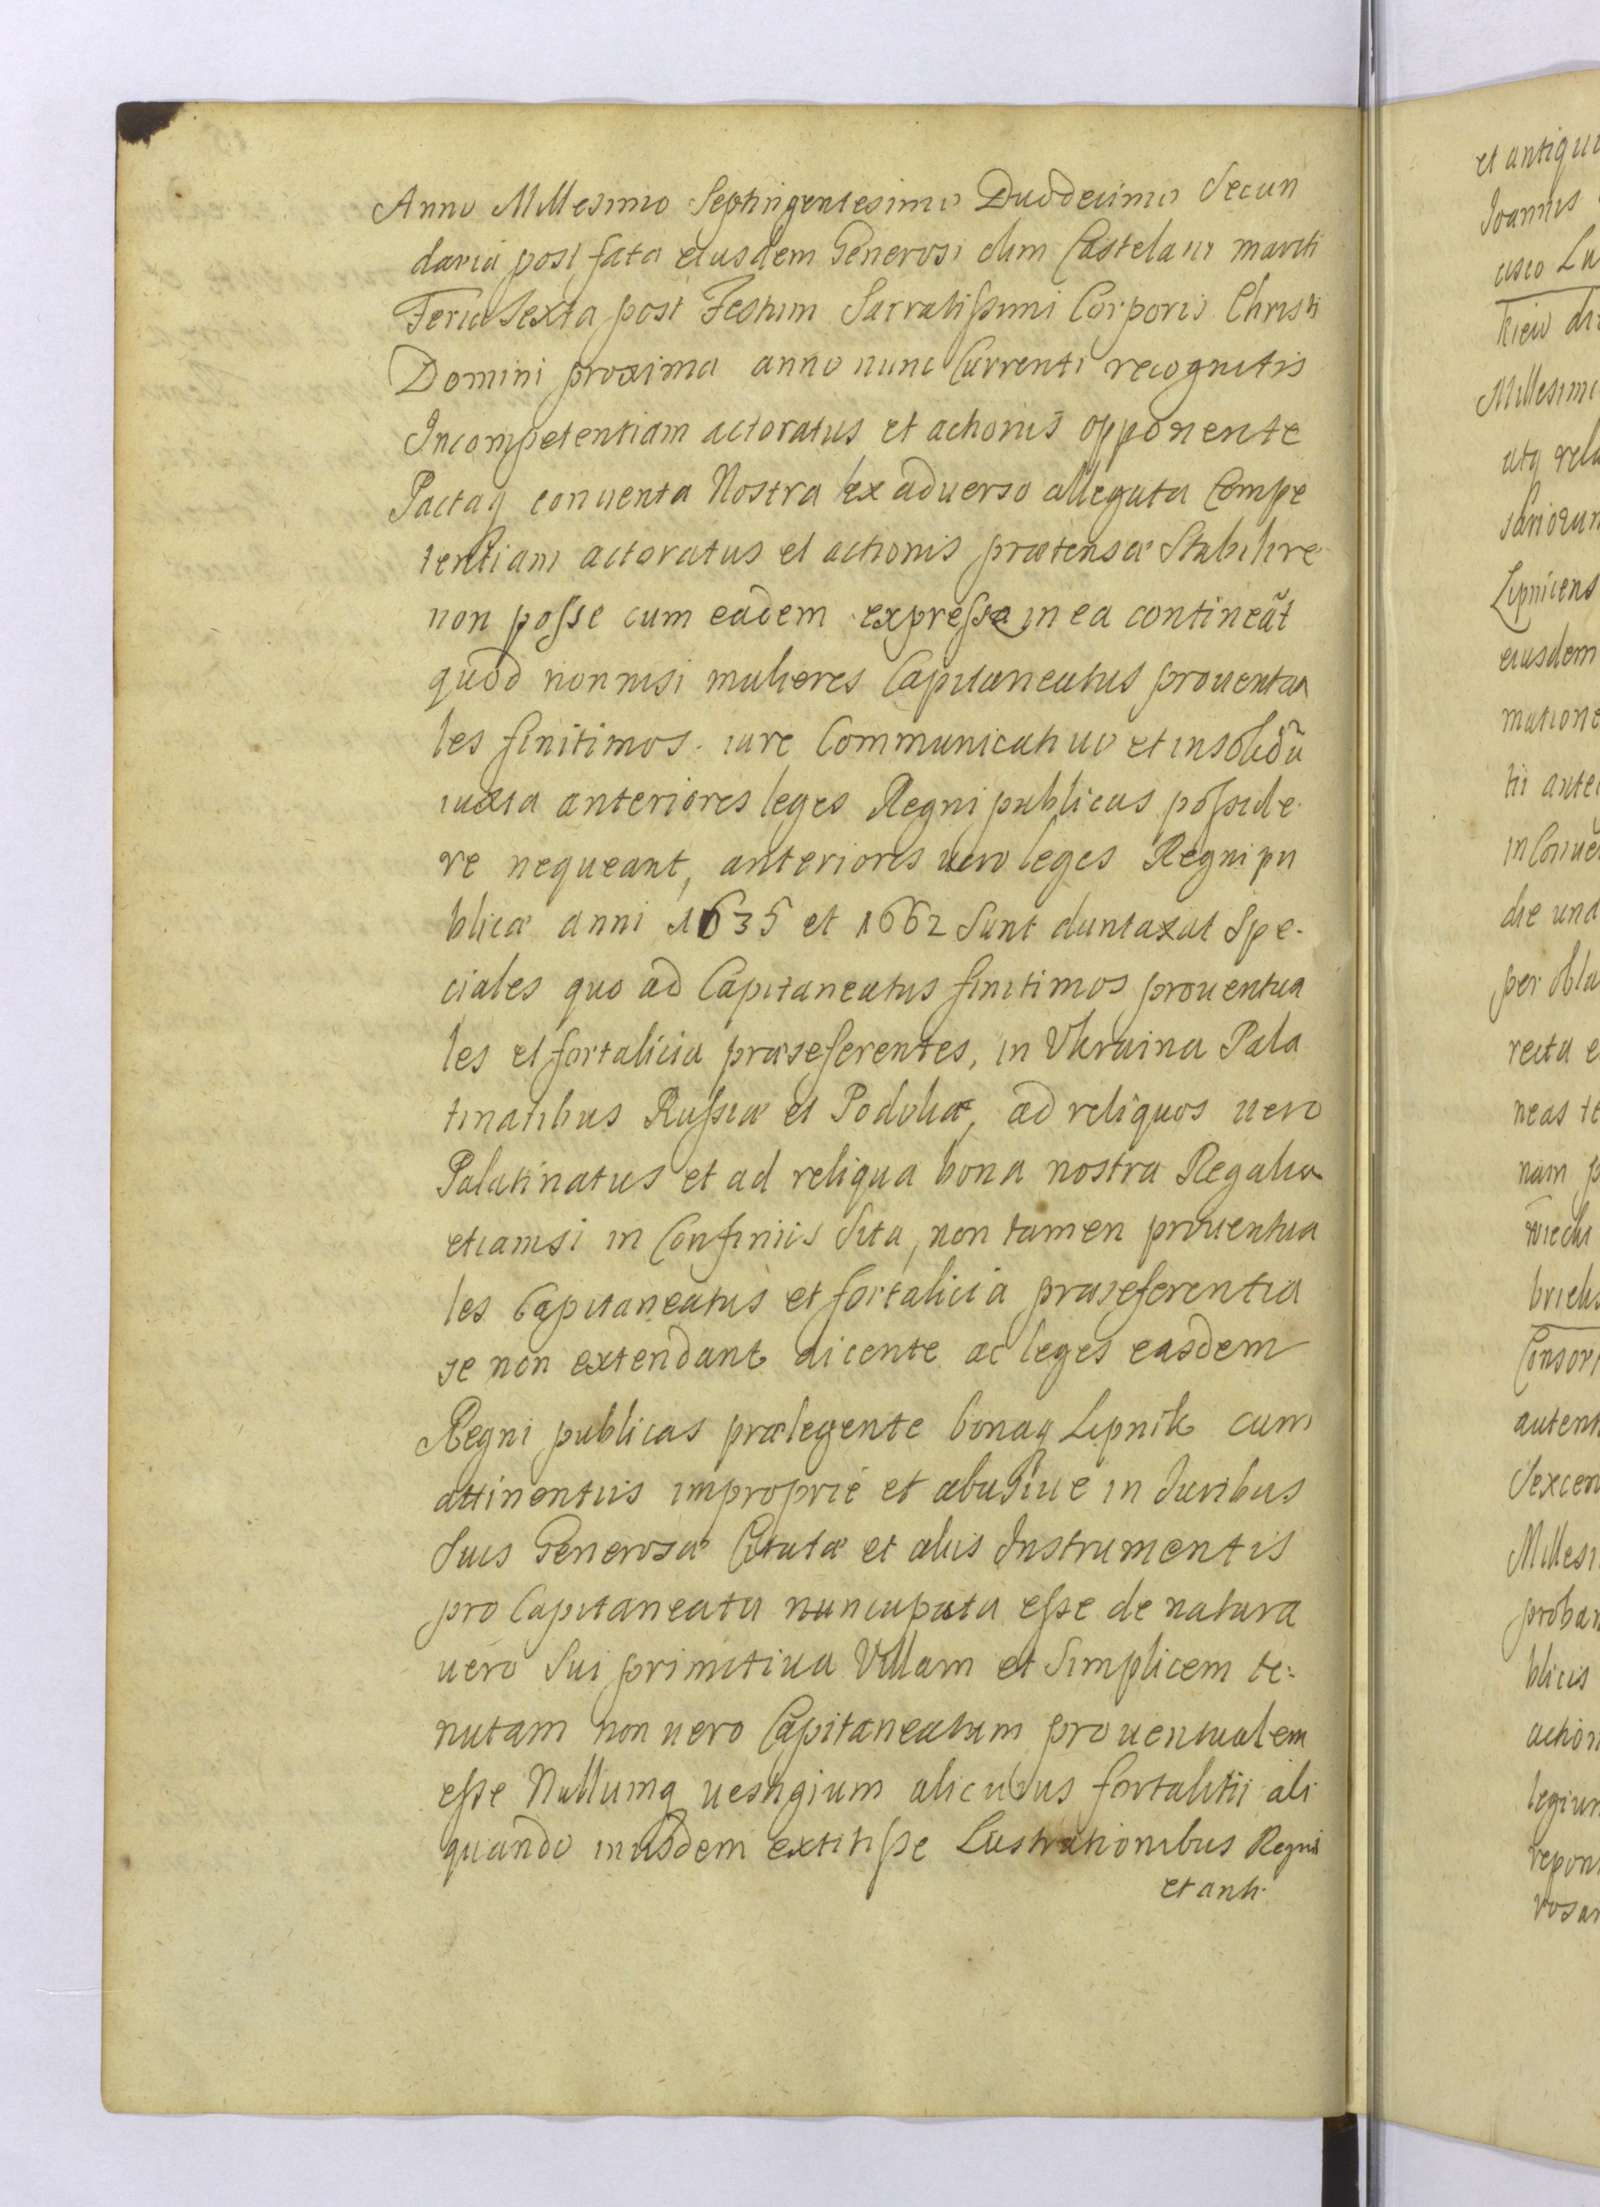 Anno Millesimo Septingentesimo Duodecimo Secun
daria post fata eiusdem Generosi olim Castelani mariti
Feria Sexta post Festum Sacratissimi Corporis Christi
Domini proxima anno nunc Currenti recognitis
Incompetentiam actoratus et actionis opponente
Pactaq conuenta Nostra ex aduerso allegata Compe
tentiam actoratus et actionis prætensæ Stabilire
non posse cum eadem expresse in ea contineãt
quod nonnisi mulieres Capitaneatus prouentua
les finitimos iure Communicatiuo et insolidũ
iuxta anteriores leges Regni publicas posside
re nequeant, anteriores uero leges Regni pu
blicæ anni 1635 et 1662 Sunt duntaxat Spe-
ciales quo ad Capitaneatus finitimos prouentua
les et fortalicia præseferentes, in Ukraina Pala
tinatibus Russiæ et Podoliæ, ad reliquos uero
Palatinatus et ad reliqua bona nostra Regalia
etiamsi in Confiniis Sita, non tamen prouentua
les Capitaneatus et fortalicia præseferentia
se non extendant dicente ac leges easdem
Regni publicas prælegente bonaq Lipnik cum
attinentiis improprie et abusiue in Iuribus
Suis Generosæ Citatæ et aliis Instrumentis
pro Capitaneatu nuncupata esse de natura
uero Sui primitiua Villam et Simplicem te:
nutam non uero Capitaneatum prouentualem
esse Nullumq uestigium alicuius fortalitii ali
quando inibidem extitisse Lustrationibus Regni
et anti-
et antiqui
Joannis
Millesimo
eiusdem
matione
die una
recta e
neas te
Consor
Millesi
proban
blicis
action
legium